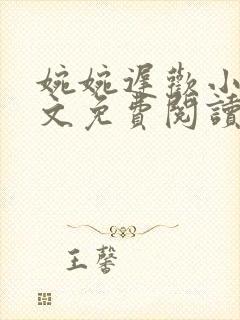 婉婉遲歡小
文免費閱讀
王馨